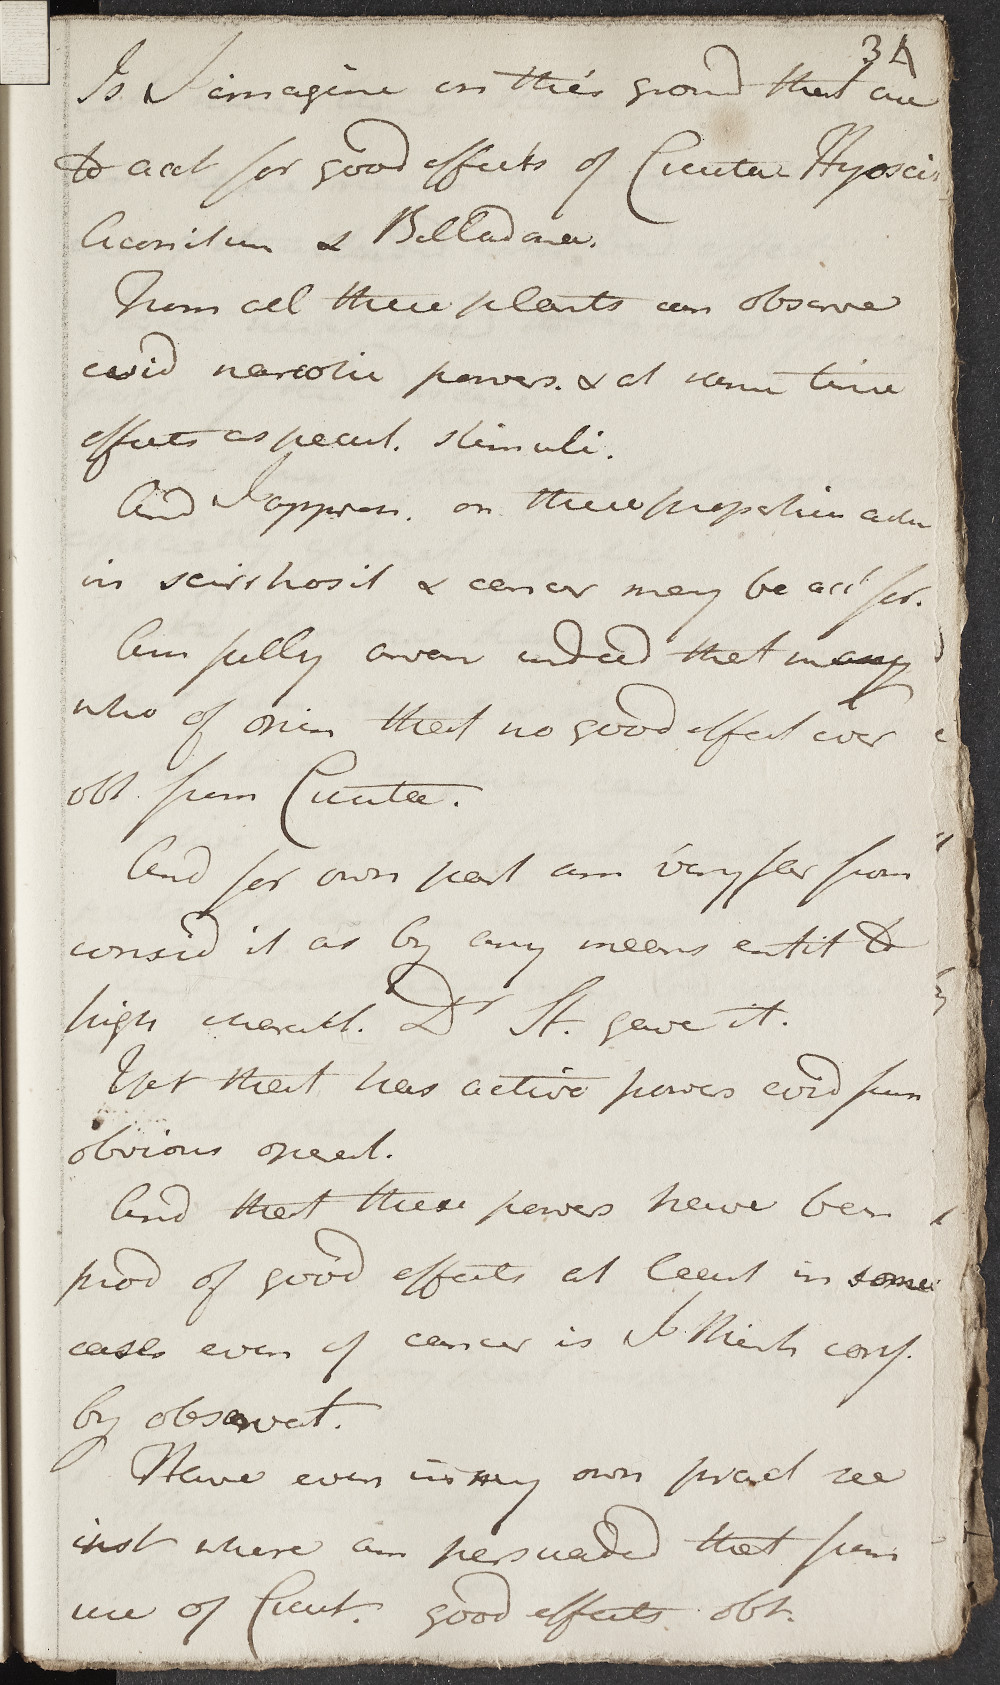 34
Is I imagine on this ground that are
to act for good effects of Cicuta Hyosci
Aconitum & Belladona.
From all these plants can observe
evid narcotic powers. & at same time
effects as pecul. stimuli.
And I appreh. on these properties
in scirrhosit & cancer may be act for.
Am fully aware indeed that many
who of opin that no good effect ever
obt from Cicuta.
And for own part am very far from
consid it as by any means entit to
high charact. Dr St. gave it.
Yet that has active powers evid from
obvious operat.
And that these powers have been
prod of good effects at least in some
cases even of cancer is I think conf.
by observat.
Have even in my own pract see
inst where am persuaded that from
use of Cicut. good effects obt.